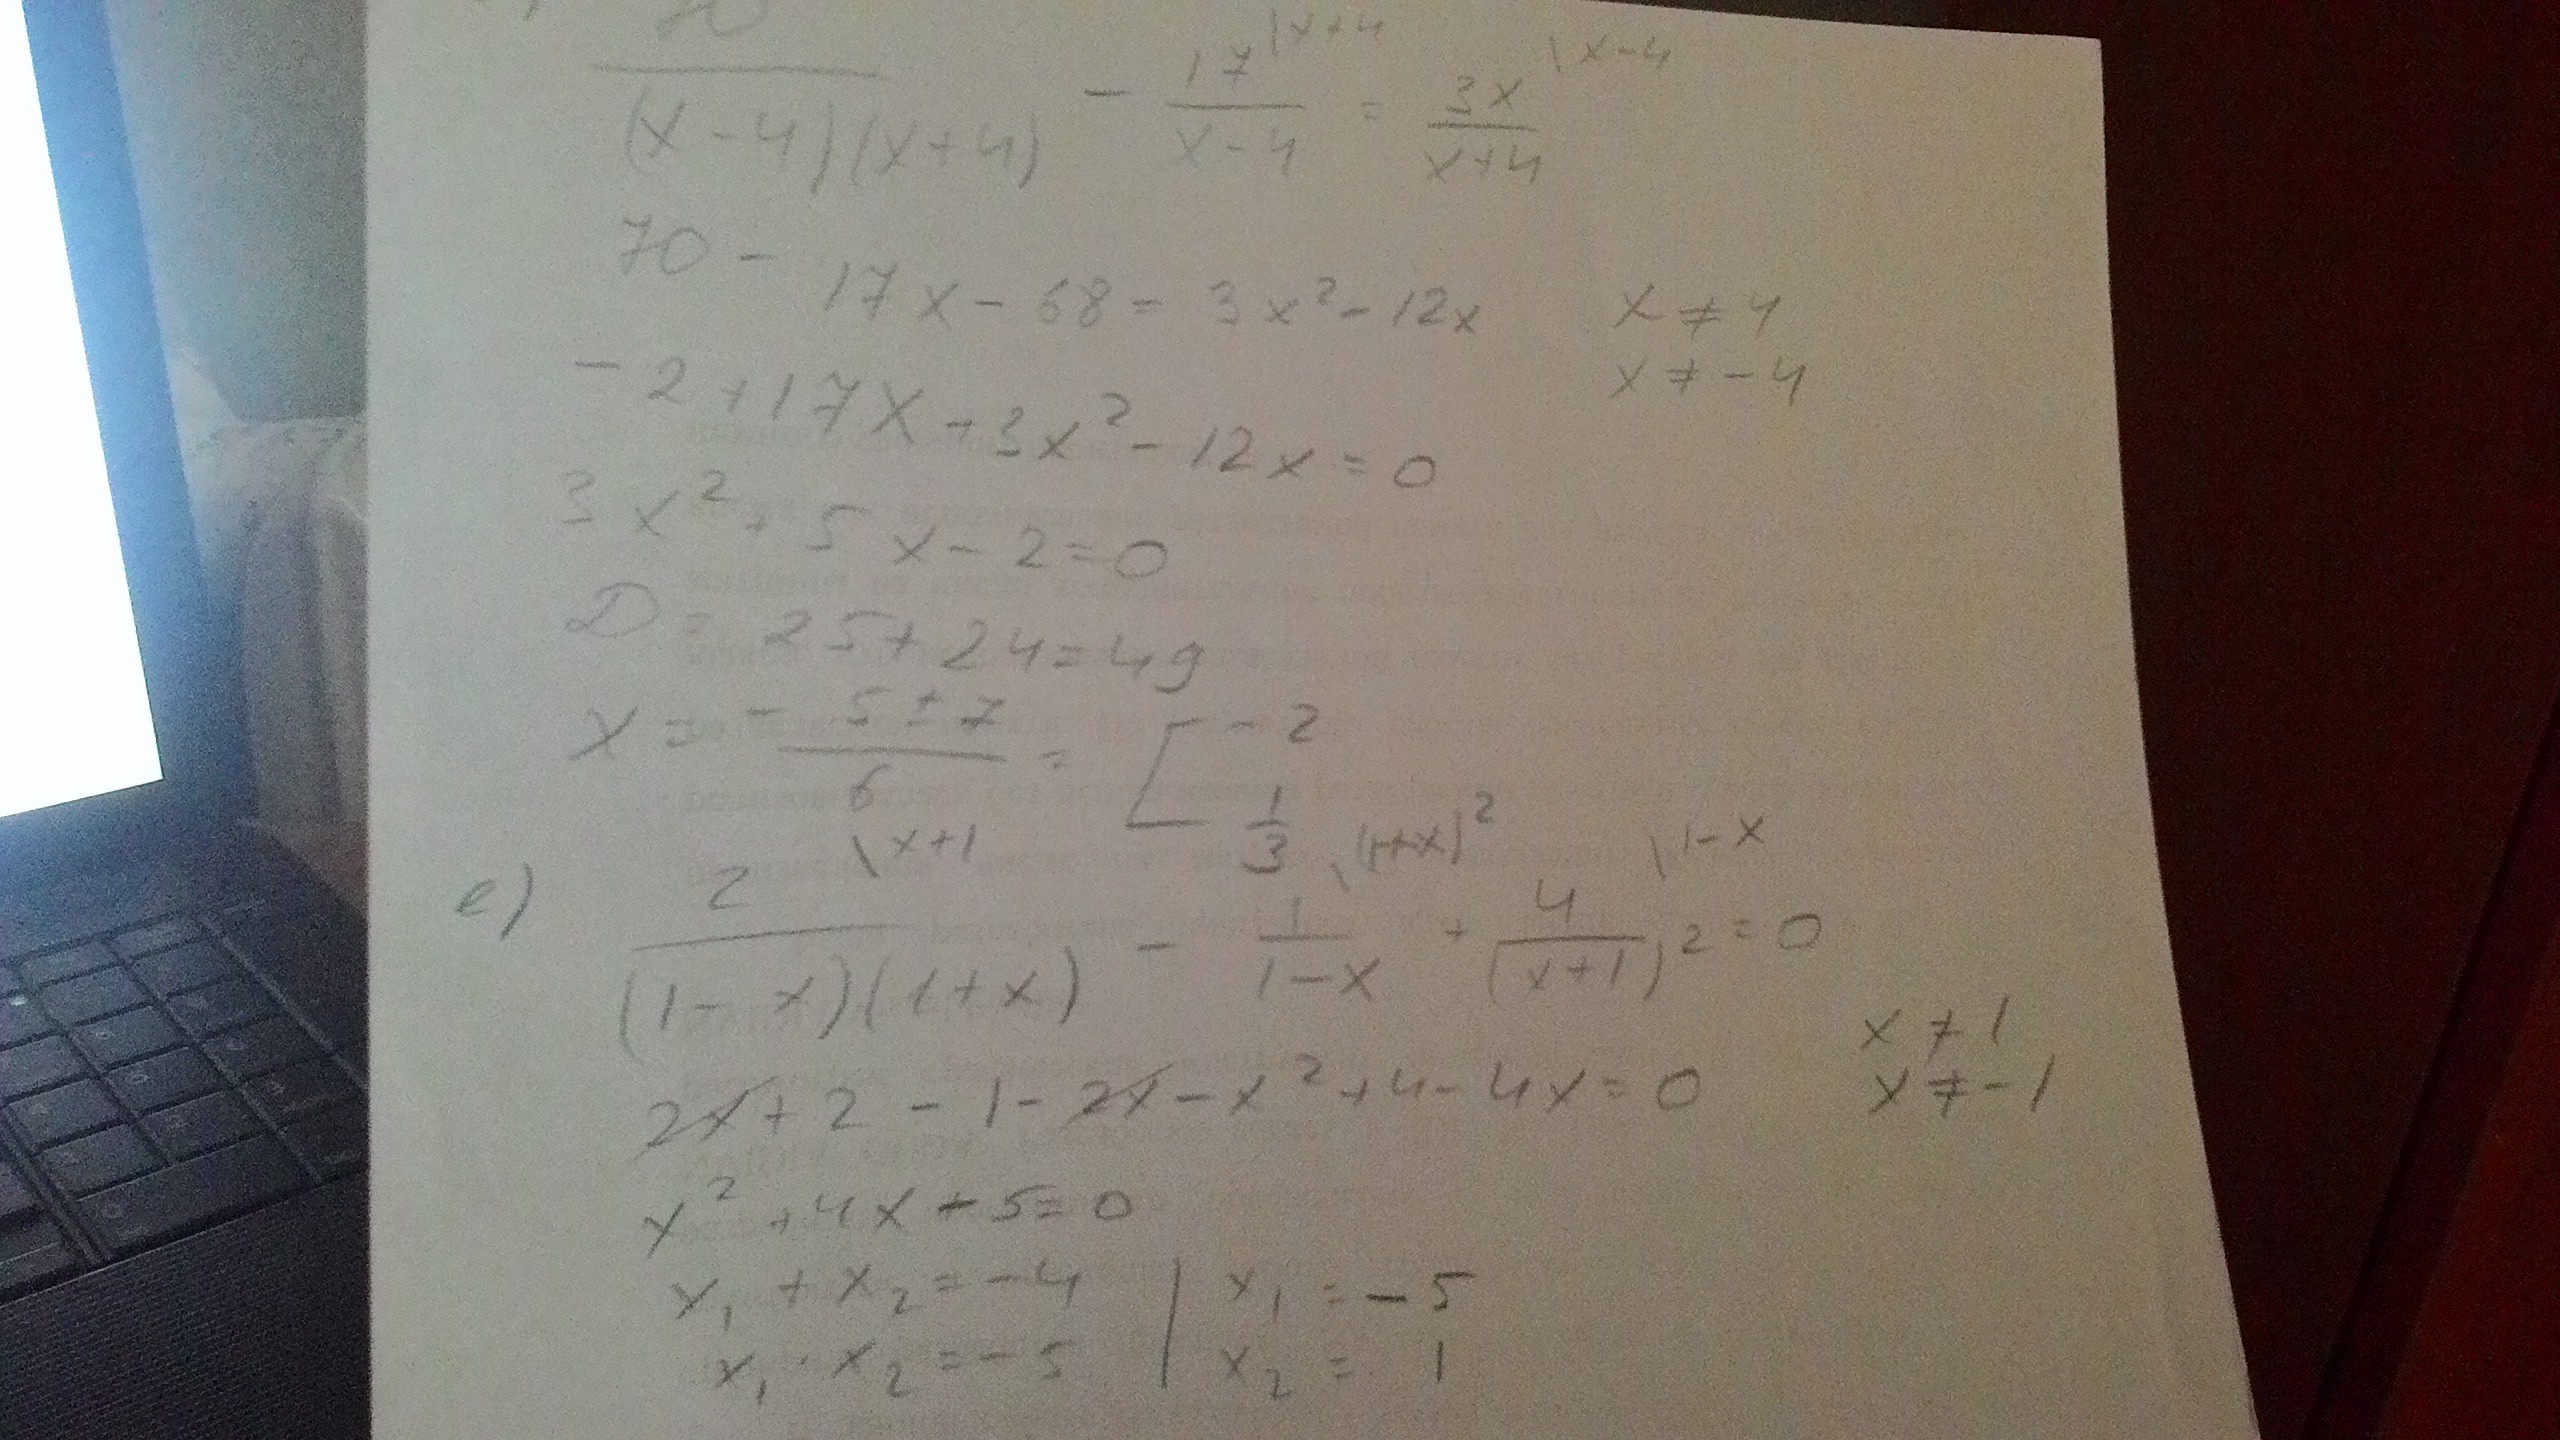 70 \x+4 \x-4
/(x-4)(x+4) - 17/(x-4) = 3x/(x+4)
70 - 17x - 68 = 3x² - 12x x ≠ 4
x ≠ -4
-2 + 17x + 3x² - 12x = 0
3x² + 5x - 2 = 0
D = 25 + 24 = 49
x = (-5 ± 7)/6 = [ -2
1/3
\x+1 \(1+x)² \1-x
e) 2/((1-x)(1+x)) - 1/(1-x) + 4/(x+1)² = 0
x ≠ 1
2x + 2 - 1 - 2x - x² + 4 - 4x = 0 x ≠ -1
x² + 4x - 5 = 0
x₁ + x₂ = -4 | x₁ = -5
x₁ · x₂ = -5 | x₂ = 1